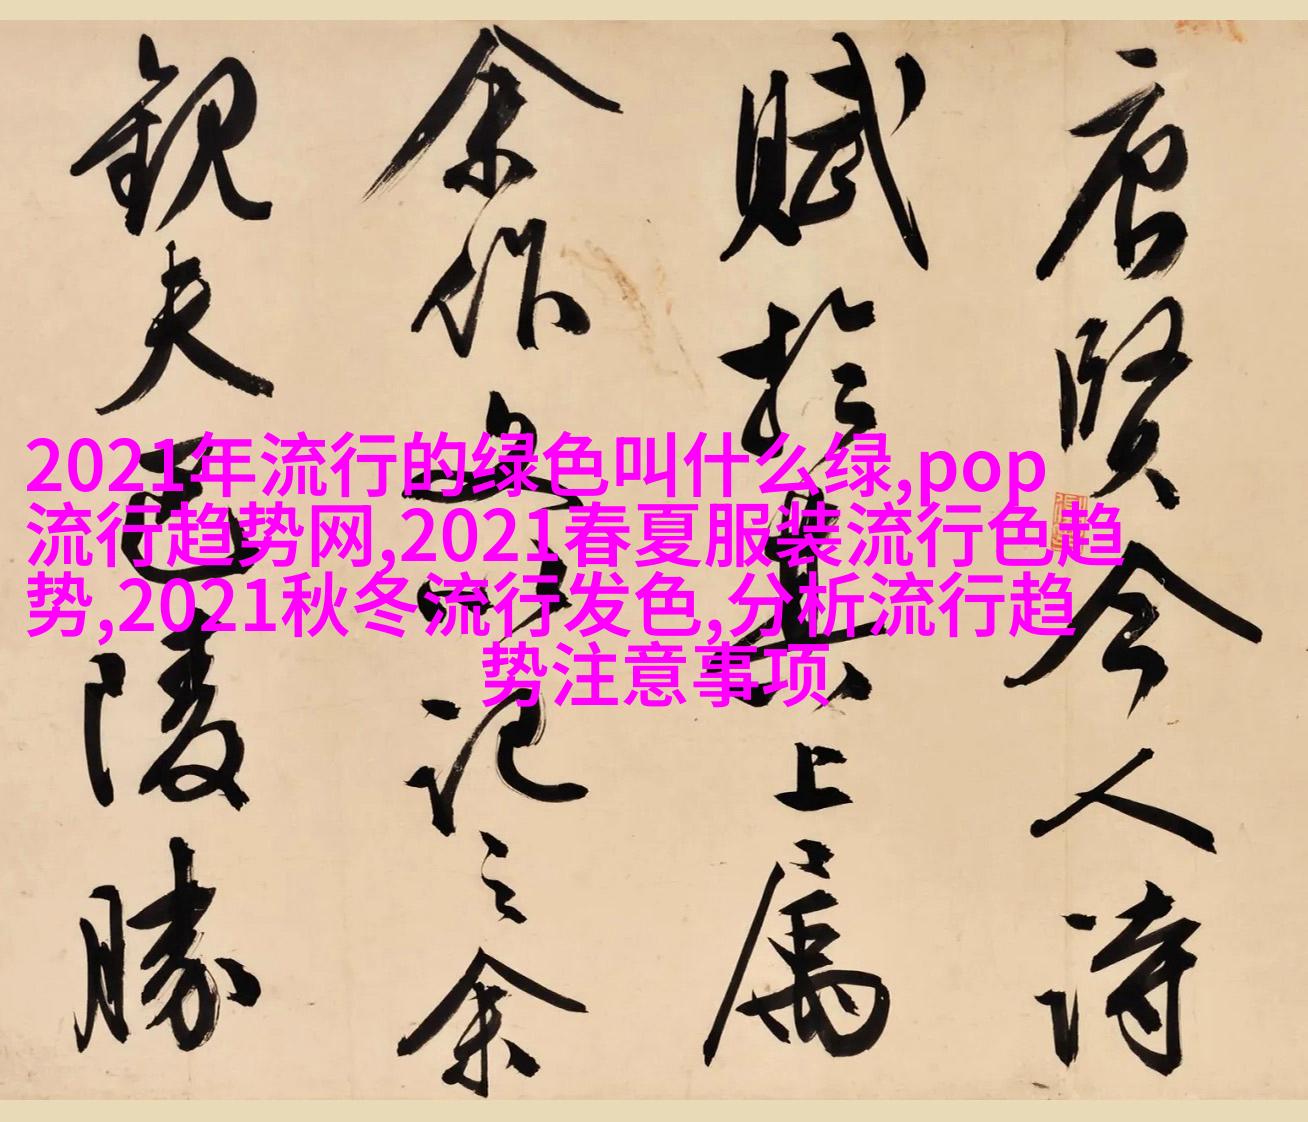 唐贤今人诗
赋于其上属
余作文以记之余
观夫巴陵胜
2021年流行的绿色叫什么绿,pop
流行趋势网,2021春夏服装流行色趋
势,2021秋冬流行发色,分析流行趋
势注意事项